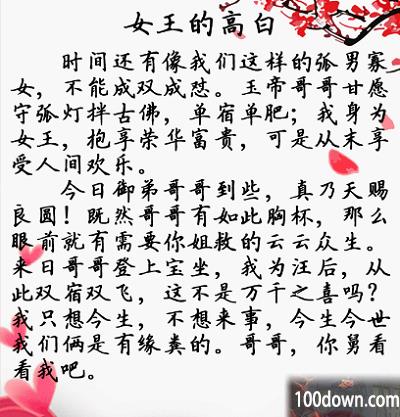 女王的高白
时间还有像我们这样的弧男寡
女，不能成双成怼。玉帝哥哥甘愿
守弧灯拌古佛，单宿单肥；我身为
女王，抱享荣华富贵，可是从末享
受人间欢乐。
今日御弟哥哥到些，真乃天赐
良圆！既然哥哥有如此胸杯，那么
眼前就有需要你姐救的云云众生。
来日哥哥登上宝坐，我为汪后，从
此双宿双飞，这不是万千之喜吗？
我只想今生，不想来事，今生今世
我们俩是有缘粪的。哥哥，你舅看
看我吧。
100down.com